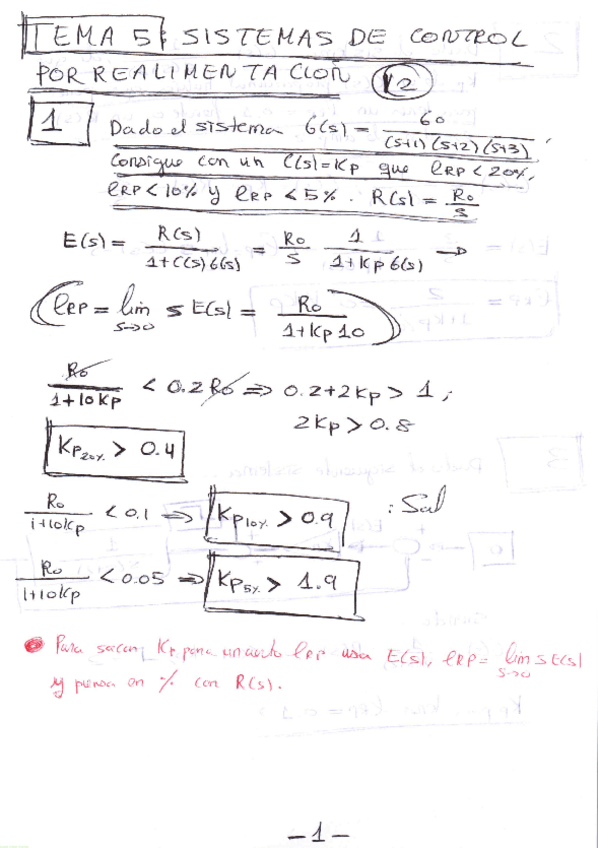 TEMA 5: SISTEMAS DE CONTROL
POR REALIMENTACION 12
1 Dado el sistema G(s) = 60 / (s+1)(s+2)(s+3).
Consigue con un C(s)=Kp que eRP < 20%,
eRP < 10% y eRP < 5%. R(s) = Ro/s
E(s) = R(s) / 1+C(s)G(s) = Ro/s 1 / 1+Kp G(s) →
eRP = lim s→0 s E(s) = Ro / 1+Kp 10
Ro / 1+10Kp < 0.2 Ro ⇒ 0.2+2Kp > 1 ;
2Kp > 0.8
Kp20% > 0.4
Ro / 1+10Kp < 0.1 ⇒ Kp10% > 0.9 : Sol
Ro / 1+10Kp < 0.05 ⇒ Kp5% > 1.9
Para sacar Kp para un cierto eRP usa E(s), eRP = lim s→0 s E(s)
y piensa en % con R(s).
-1-